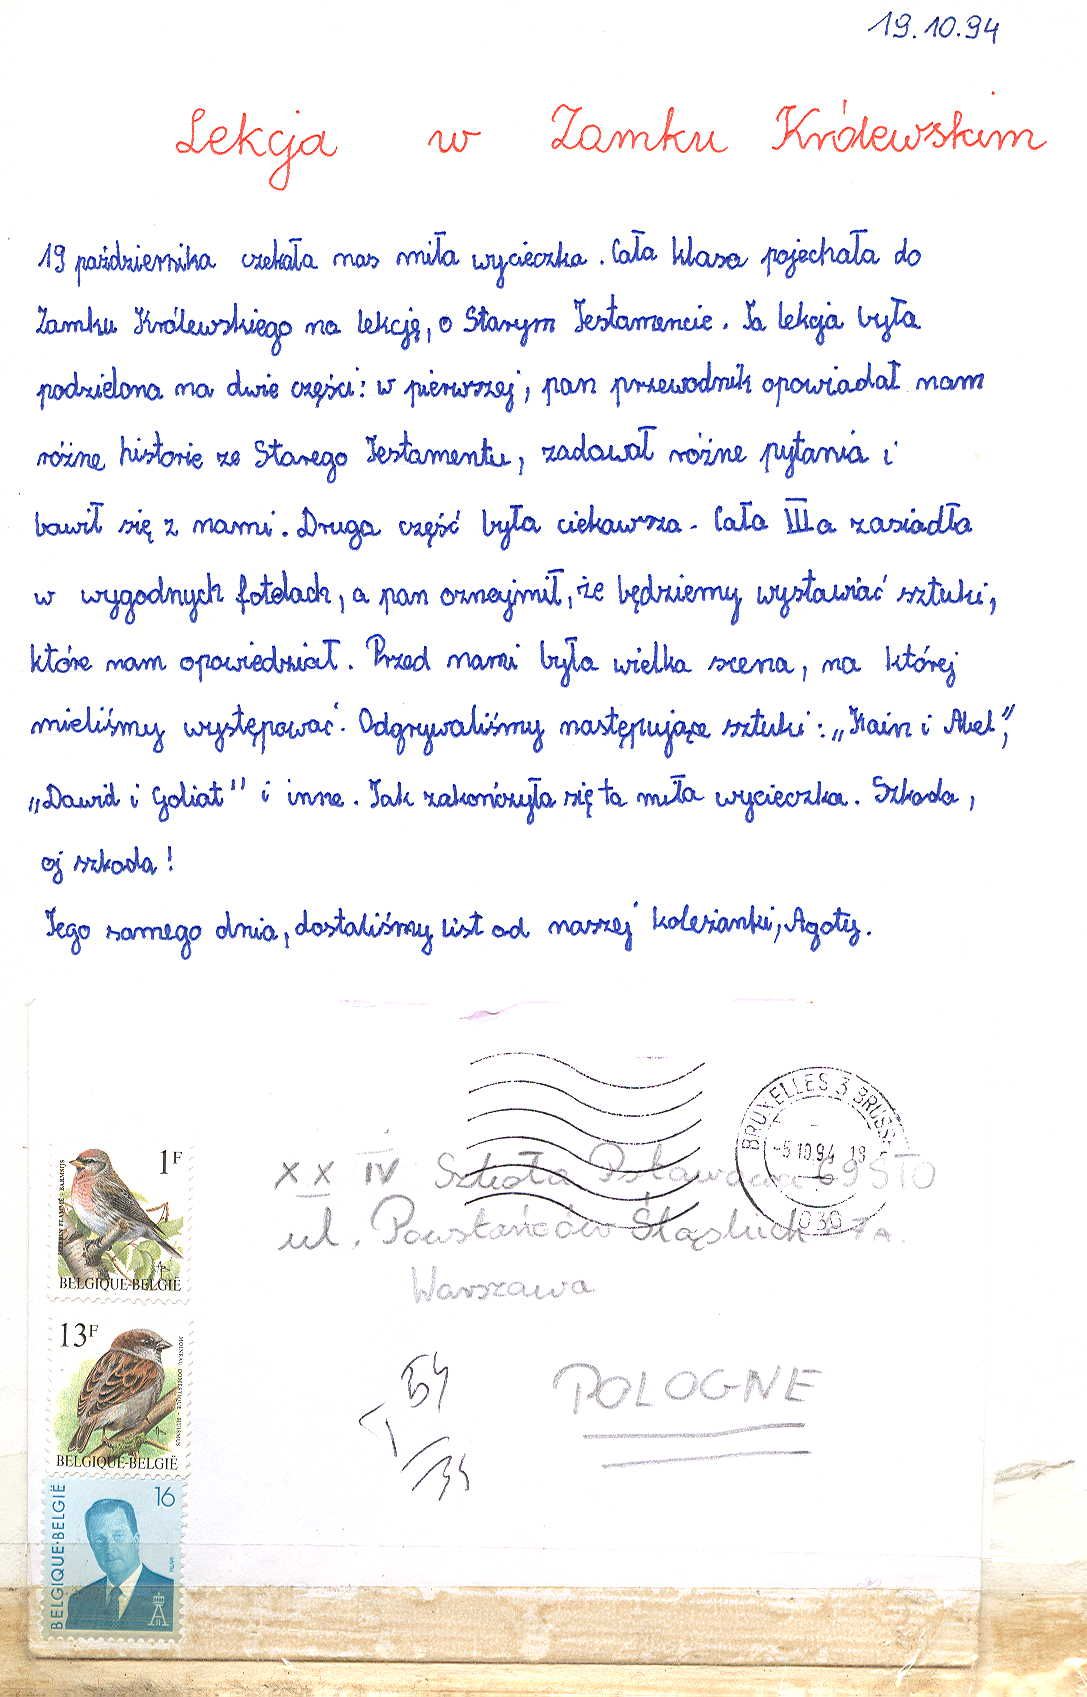 19.10.94
Lekcja w Zamku Królewskim
19 października czekała nas miła wycieczka. Cała klasa pojechała do
Zamku Królewskiego na lekcję, o Starym Testamencie. Ta lekcja była
podzielona na dwie części: w pierwszej, pan przewodnik opowiadał nam
różne historie ze Starego Testamentu, zadawał różne pytania i
bawił się z nami. Druga część była ciekawsza. Cała III a zasiadła
w wygodnych fotelach, a pan oznajmił, że będziemy wystawiać sztuki,
które nam opowiedział. Przed nami była wielka scena, na której
mieliśmy występować. Odgrywaliśmy następujące sztuki: „Kain i Abel",
„Dawid i Goliat" i inne. Tak zakończyła się ta miła wycieczka. Szkoda,
oj szkoda!
Tego samego dnia, dostaliśmy list od naszej koleżanki, Agaty.
BRUXELLES 3
-5 10.94 19
1030
XX IV Szkoła 69 STO
ul. Powstańców Śląskich 7A.
Warszawa
POLOGNE
1F
BELGIQUE-BELGIË
13F
BELGIQUE-BELGIË
16
BELGIQUE-BELGIË